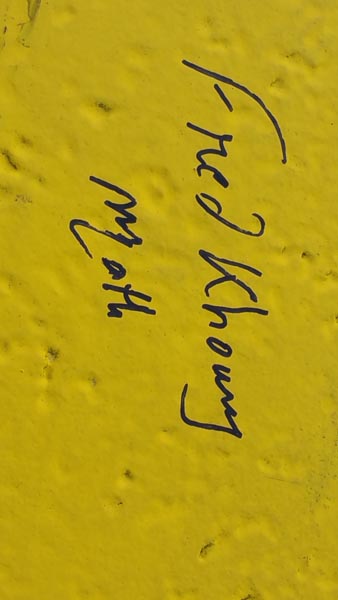 Fred Khoury
Math